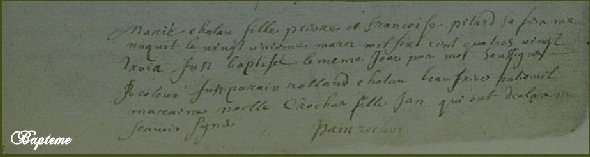 Marie chatau fille pierre et francoise pitard sa femme
naquit le vingt unieme mars mil six cent quatres vingt
trois fut baptisé le meme jour par moi soussigné
fut parain rolland chatau beau frere
maraine noelle fille Jan qui ont declaré ne
scavoir syner
Bapteme